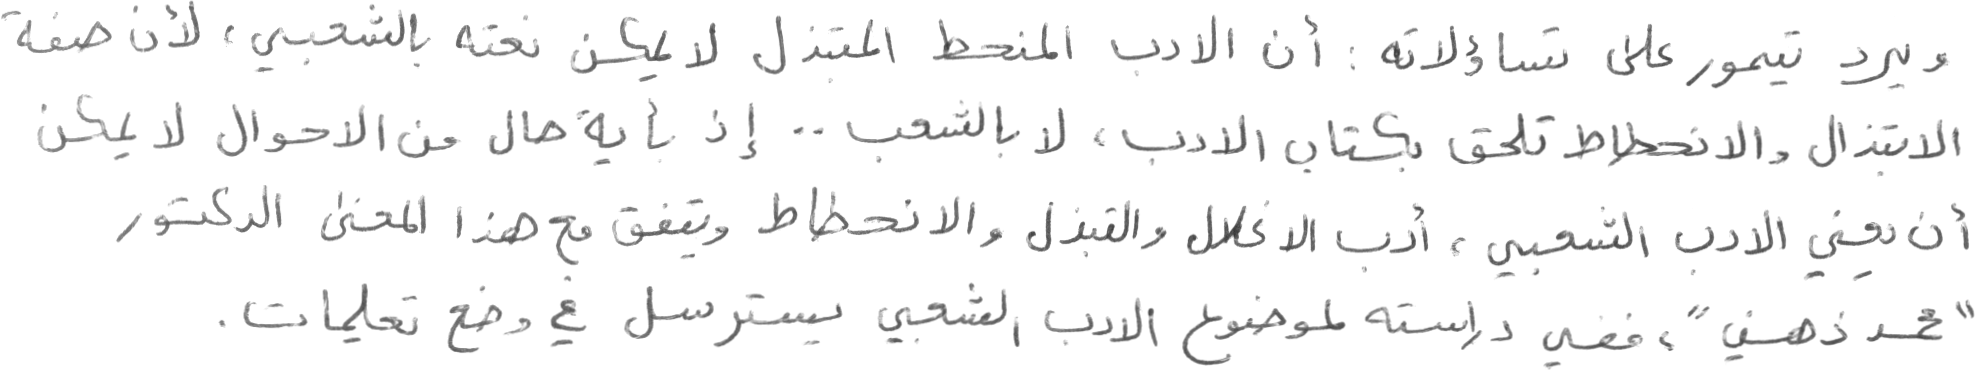 ويرد تيمور على تساؤلاته : أن الادب المنحط المبتذل لا يمكن نعته بالشعبي، لأن صفة
الابتذال والانحطاط تلحق بكتاب الادب، لا بالشعب .. إذ بأية حال من الاحوال لا يمكن
أن يعني الادب الشعبي، أدب الانحلال والتبذل والانحطاط ويتفق مع هذا المعنى الدكتور
"محمد ذهني"، ففي دراسته لموضوع الادب الشعبي يسترسل في وضع تعليمات.